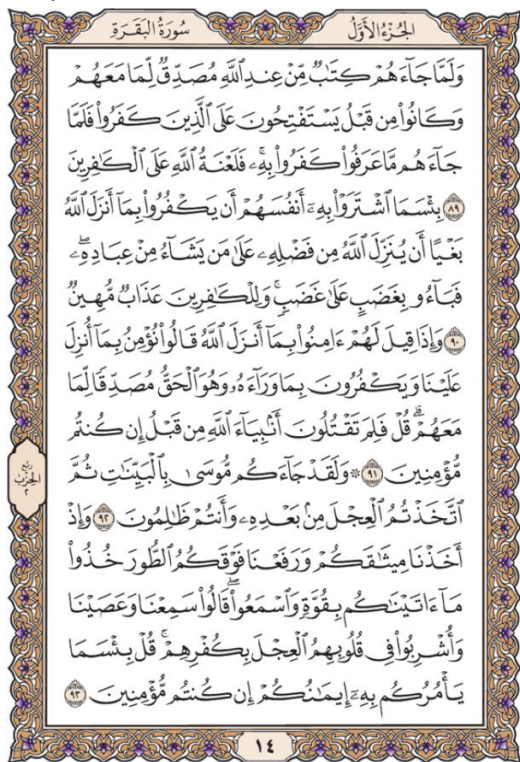 الجُزْءُ الأَوَّلُ سُورَةُ البَقَرَةِ
وَلَمَّا جَآءَهُمْ كِتَٰبٌ مِّنْ عِندِ ٱللَّهِ مُصَدِّقٌ لِّمَا مَعَهُمْ
وَكَانُوا۟ مِن قَبْلُ يَسْتَفْتِحُونَ عَلَى ٱلَّذِينَ كَفَرُوا۟ فَلَمَّا
جَآءَهُم مَّا عَرَفُوا۟ كَفَرُوا۟ بِهِۦۚ فَلَعْنَةُ ٱللَّهِ عَلَى ٱلْكَٰفِرِينَ
٨٩ بِئْسَمَا ٱشْتَرَوْا۟ بِهِۦٓ أَنفُسَهُمْ أَن يَكْفُرُوا۟ بِمَآ أَنزَلَ ٱللَّهُ
بَغْيًا أَن يُنَزِّلَ ٱللَّهُ مِن فَضْلِهِۦ عَلَىٰ مَن يَشَآءُ مِنْ عِبَادِهِۦۖ
فَبَآءُو بِغَضَبٍ عَلَىٰ غَضَبٍۚ وَلِلْكَٰفِرِينَ عَذَابٌ مُّهِينٌ
٩٠ وَإِذَا قِيلَ لَهُمْ ءَامِنُوا۟ بِمَآ أَنزَلَ ٱللَّهُ قَالُوا۟ نُؤْمِنُ بِمَآ أُنزِلَ
عَلَيْنَا وَيَكْفُرُونَ بِمَا وَرَآءَهُۥ وَهُوَ ٱلْحَقُّ مُصَدِّقًا لِّمَا
مَعَهُمْۗ قُلْ فَلِمَ تَقْتُلُونَ أَنۢبِيَآءَ ٱللَّهِ مِن قَبْلُ إِن كُنتُم
مُّؤْمِنِينَ ٩١ ۞ وَلَقَدْ جَآءَكُم مُّوسَىٰ بِٱلْبَيِّنَٰتِ ثُمَّ
ربع الحزب ٢
ٱتَّخَذْتُمُ ٱلْعِجْلَ مِنۢ بَعْدِهِۦ وَأَنتُمْ ظَٰلِمُونَ ٩٢ وَإِذْ
أَخَذْنَا مِيثَٰقَكُمْ وَرَفَعْنَا فَوْقَكُمُ ٱلطُّورَ خُذُوا۟
مَآ ءَاتَيْنَٰكُم بِقُوَّةٍ وَٱسْمَعُوا۟ۖ قَالُوا۟ سَمِعْنَا وَعَصَيْنَا
وَأُشْرِبُوا۟ فِى قُلُوبِهِمُ ٱلْعِجْلَ بِكُفْرِهِمْۚ قُلْ بِئْسَمَا
يَأْمُرُكُم بِهِۦٓ إِيمَٰنُكُمْ إِن كُنتُم مُّؤْمِنِينَ ٩٣
١٤